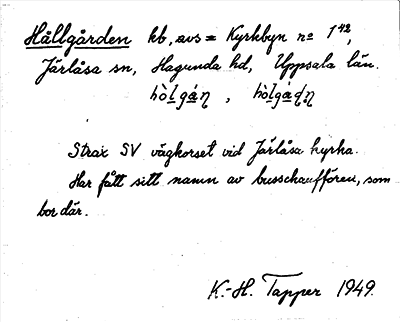 Hållgården kb, avs = Kyrkbyn nº 1⁴²,
Järlåsa sn, Hagunda hd, Uppsala län.
hòlgán , hòlgádn
Strax SV vägkorset vid Järlåsa kyrka.
Har fått sitt namn av busschauffören, som
bor där.
K.-H. Tapper 1949.